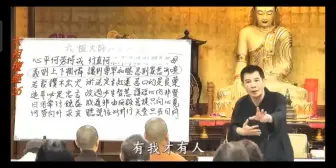 六祖大師
心平何勞持戒 行直何 母
義則上下相憐 讓則尊卑和睦 忍則眾惡無喧
若能鑽木出火 淤泥定生紅蓮 苦口的是良藥
逆耳必是忠言 改過必生智慧 護短心內非賢
日用常行饒益 成道非由施錢 菩提只向心覓
何勞向外求玄 聽說依此修行 天堂只在目前
有我才有人